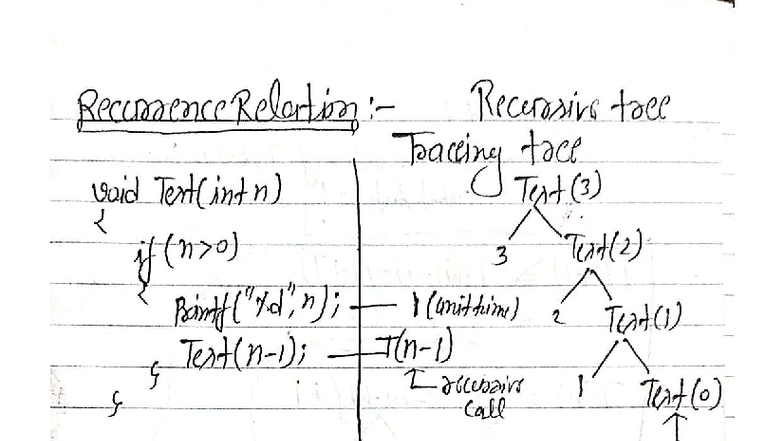 Recurrence Relation :-
Recursive tree
Tracing tree
void Test(int n)
{
if (n>0)
{
Printf("%d", n); — 1 (unit time)
Test(n-1); — T(n-1)
↑ recursive call
}
}
Test(3)
3 Test(2)
2 Test(1)
1 Test(0)
↑